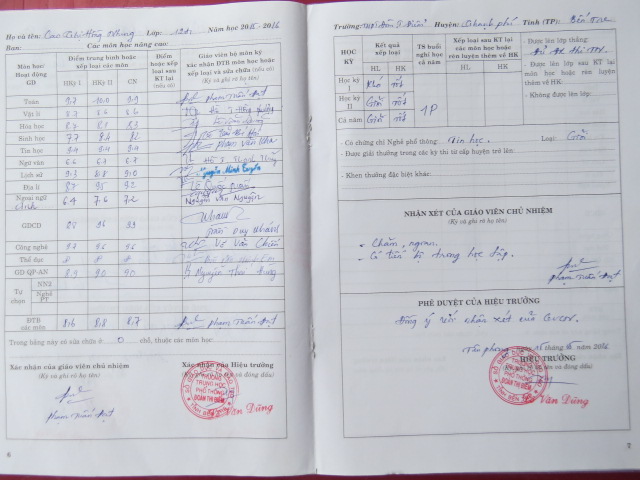 Họ và tên: Cao Thị Hồng Nhung Lớp: 12A1 Năm học 2015 - 2016
Ban: Các môn học nâng cao:
Môn học/ Hoạt động GD
Điểm trung bình hoặc xếp loại các môn
HKỳ I HKỳ II CN
Điểm hoặc xếp loại sau KT lại (nếu có)
Giáo viên bộ môn ký xác nhận ĐTB môn học hoặc xếp loại và sửa chữa (nếu có)
(Ký và ghi rõ họ tên)
Toán 9,7 10.0 9.9 Phạm Tuấn Đạt
Vật lí 8.7 8.6 8.6
Hóa học 8.7 8.1 8.3
Sinh học 7.7 8.4 8.2
Tin học 9.4 9.4 9.4 Phạm Văn
Ngữ văn 6.6 6.7 6.7
Lịch sử 9.3 8.8 9.0 Nguyễn Minh
Địa lí 8.7 9.5 9.2
Ngoại ngữ 6.4 7.6 7.2 Nguyễn Văn Nguyện
Anh
GDCD 8.8 9.6 9.3
Công nghệ 9.7 9.6 9.6 Võ Văn
Thể dục đ đ đ
GD QP-AN 8.9 9.0 9.0 Nguyễn Thái
Tự chọn
NN2
Nghề PT
ĐTB các môn 8.6 8.8 8.7 Phạm Tuấn Đạt
Trong bảng này có sửa chữa ở 0 chỗ, thuộc các môn:
Xác nhận của giáo viên chủ nhiệm
(Ký và ghi rõ họ tên)
Phạm Tuấn Đạt
Xác nhận của Hiệu trưởng
(Ký, ghi rõ họ tên và đóng dấu)
TRƯỜNG
TRUNG HỌC
PHỔ THÔNG
ĐOÀN THỊ ĐIỂM
Văn Dũng
6
Trường: Huyện: Thạnh Phú Tỉnh (TP): Bến Tre
HỌC KỲ
Kết quả xếp loại
HL HK
TS buổi nghỉ học cả năm
Xếp loại sau KT lại các môn học hoặc rèn luyện thêm về HK
HL HK
- Được lên lớp thẳng:
- Được lên lớp sau KT lại môn học hoặc rèn luyện thêm về HK:
- Không được lên lớp:
Học kỳ I Khá Tốt
Học kỳ II Giỏi Tốt
Cả năm Giỏi Tốt
1P
- Có chứng chỉ Nghề phổ thông: Tin học. Loại: Giỏi
- Được giải thưởng trong các kỳ thi từ cấp huyện trở lên:
- Khen thưởng đặc biệt khác:
NHẬN XÉT CỦA GIÁO VIÊN CHỦ NHIỆM
(Ký và ghi rõ họ tên)
- Chăm, ngoan.
- Có tiến bộ trong học tập.
Phạm Tuấn Đạt
PHÊ DUYỆT CỦA HIỆU TRƯỞNG
Đồng ý với nhận xét của GVCN.
HIỆU TRƯỞNG
(Ký, ghi rõ họ tên và đóng dấu)
TRƯỜNG
TRUNG HỌC
PHỔ THÔNG
ĐOÀN THỊ ĐIỂM
Văn Dũng